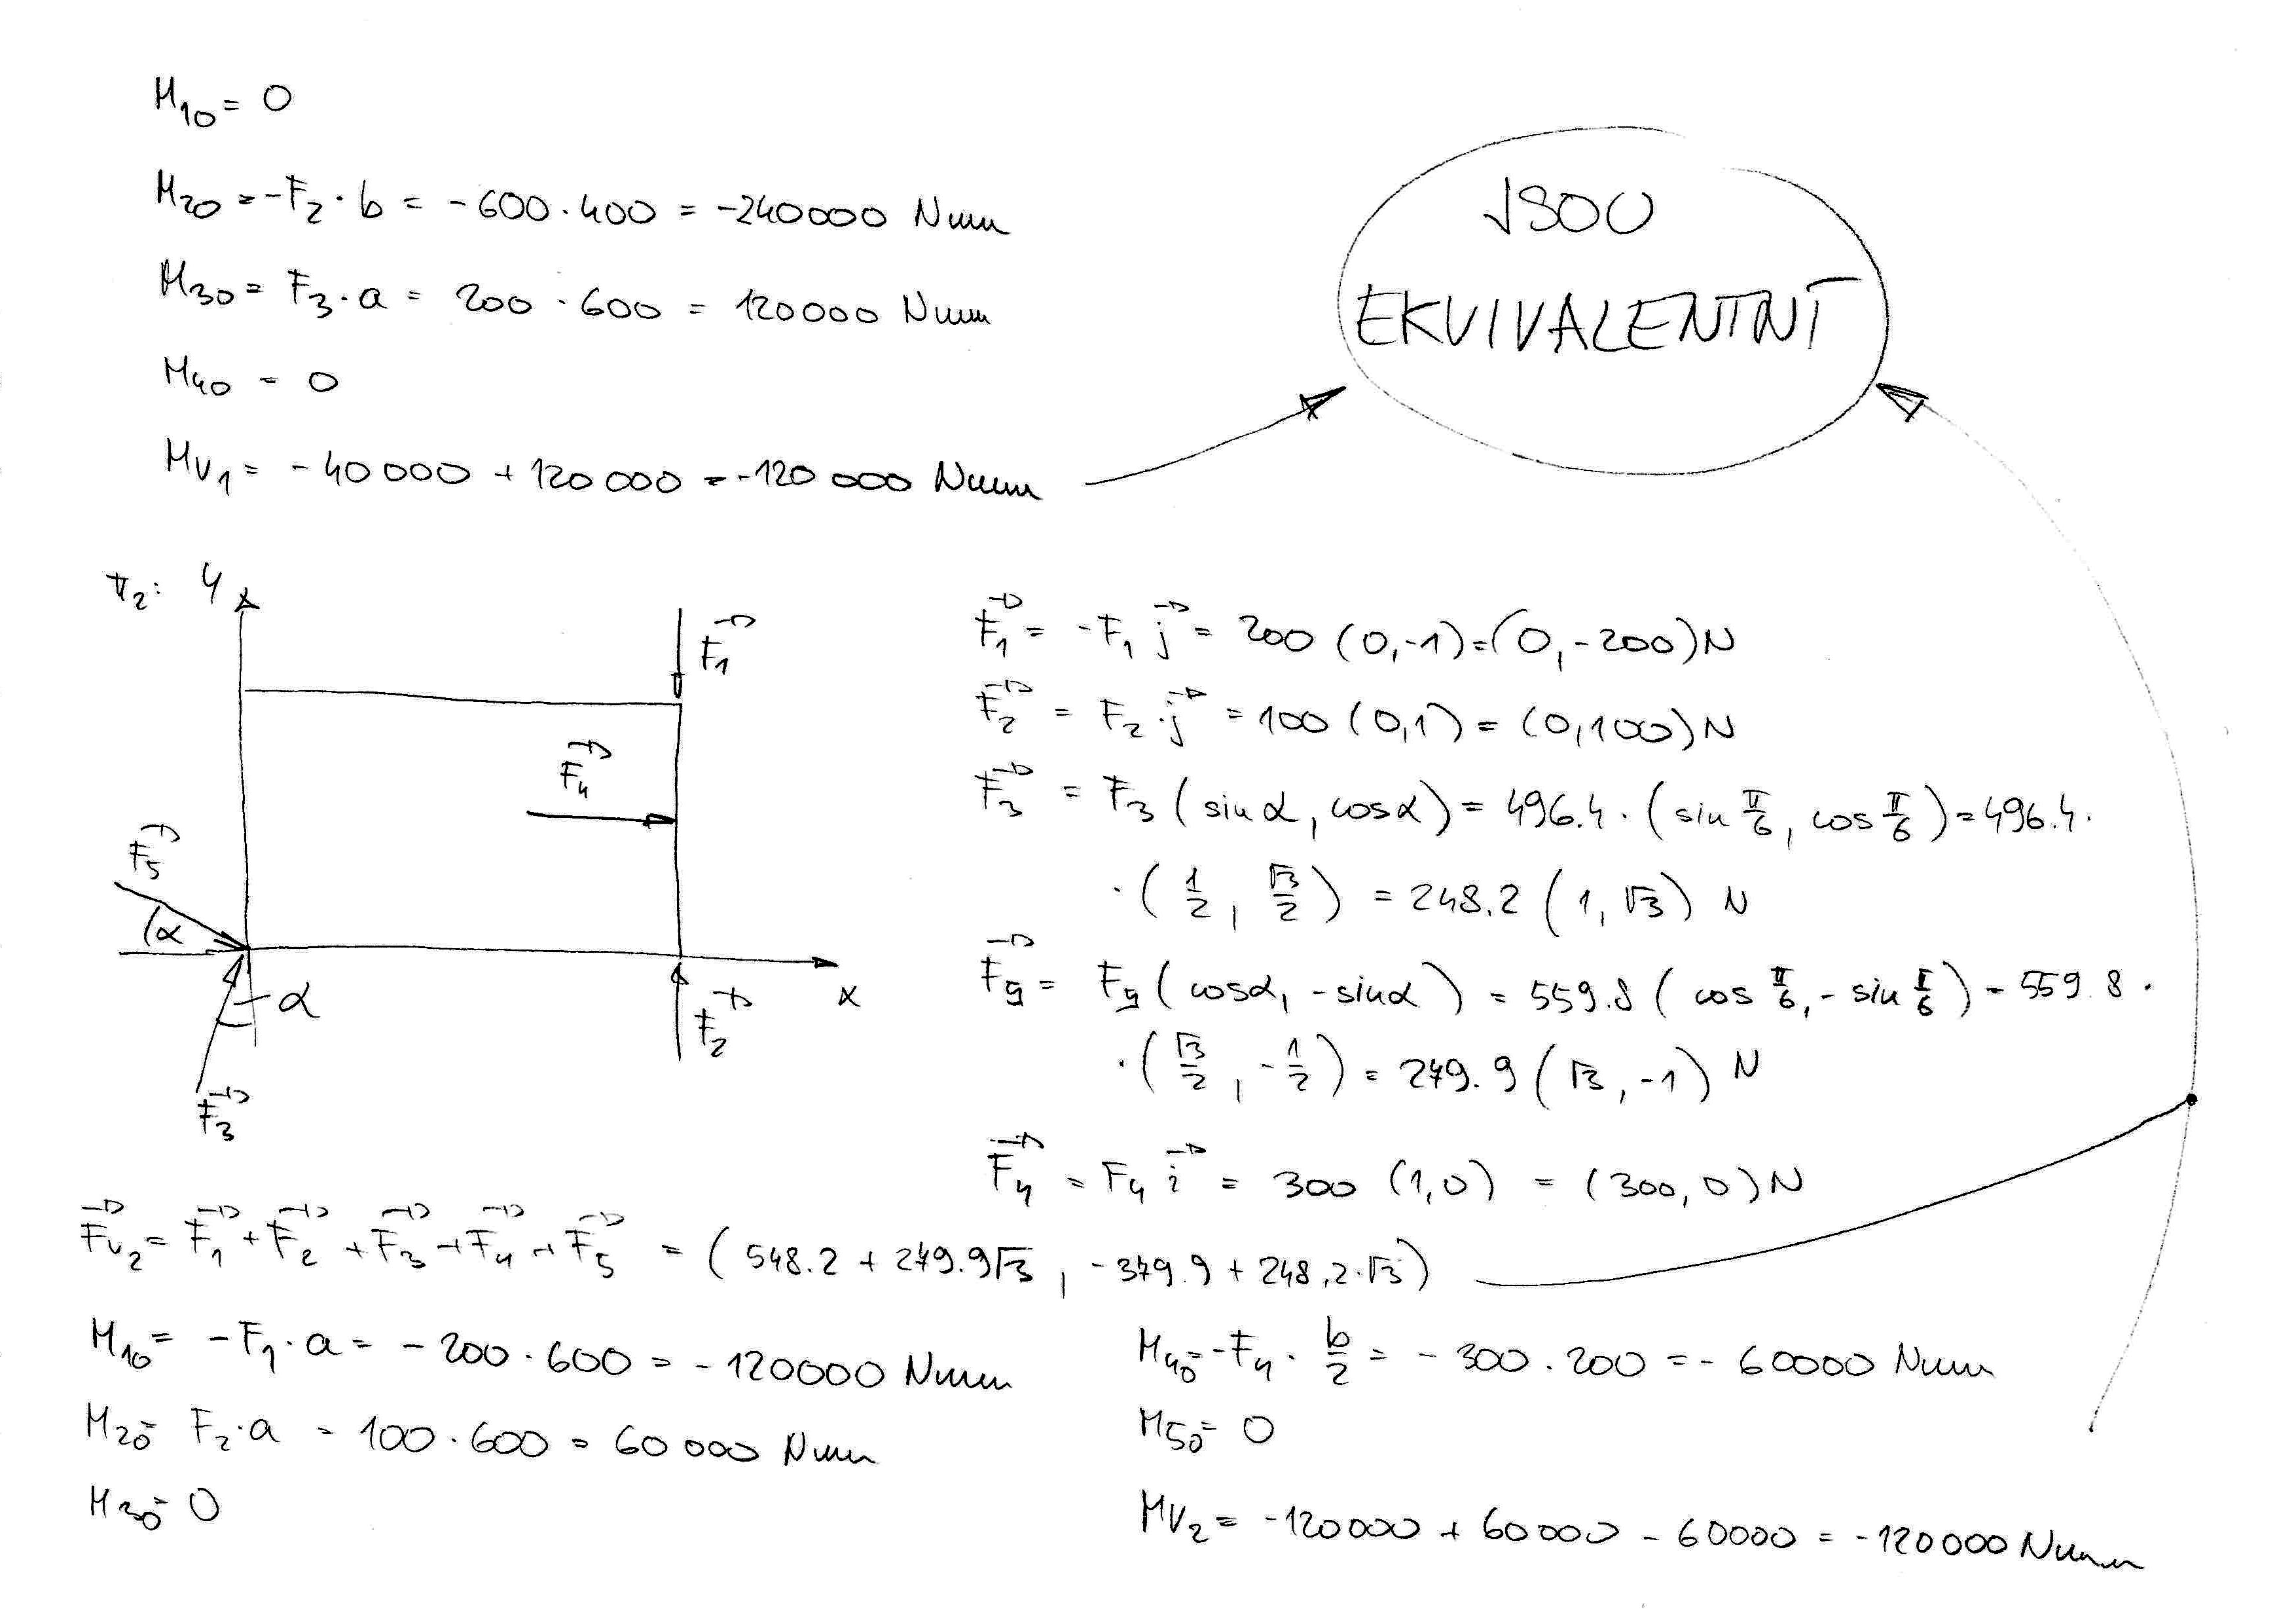 M₁₀ = 0
M₂₀ = -F₂ · b = -600 · 400 = -240000 Nmm
M₃₀ = F₃ · a = 200 · 600 = 120000 Nmm
M₄₀ = 0
M_V₁ = -40000 + 120000 = -120000 Nmm
JSOU
EKVIVALENTNÍ
π₂:
y
F₁→
F₄→
F₅→
α
x
α
F₂→
F₃→
F₁→ = -F₁ j→ = 200 (0,-1) = (0,-200) N
F₂→ = F₂ · j→ = 100 (0,1) = (0,100) N
F₃→ = F₃ (sin α, cos α) = 496.4 · (sin π/6, cos π/6) = 496.4 ·
· (1/2, √3/2) = 248.2 (1, √3) N
F₅→ = F₅ (cos α, -sin α) = 559.8 (cos π/6, -sin π/6) = 559.8 ·
· (√3/2, -1/2) = 279.9 (√3, -1) N
F₄→ = F₄ i→ = 300 (1,0) = (300,0) N
F_V₂→ = F₁→ + F₂→ + F₃→ + F₄→ + F₅→ = (548.2 + 279.9√3, -379.9 + 248.2·√3)
M₁₀ = -F₁ · a = -200 · 600 = -120000 Nmm
M₂₀ = F₂ · a = 100 · 600 = 60000 Nmm
M₃₀ = 0
M₄₀ = -F₄ · b/2 = -300 · 200 = -60000 Nmm
M₅₀ = 0
M_V₂ = -120000 + 60000 - 60000 = -120000 Nmm